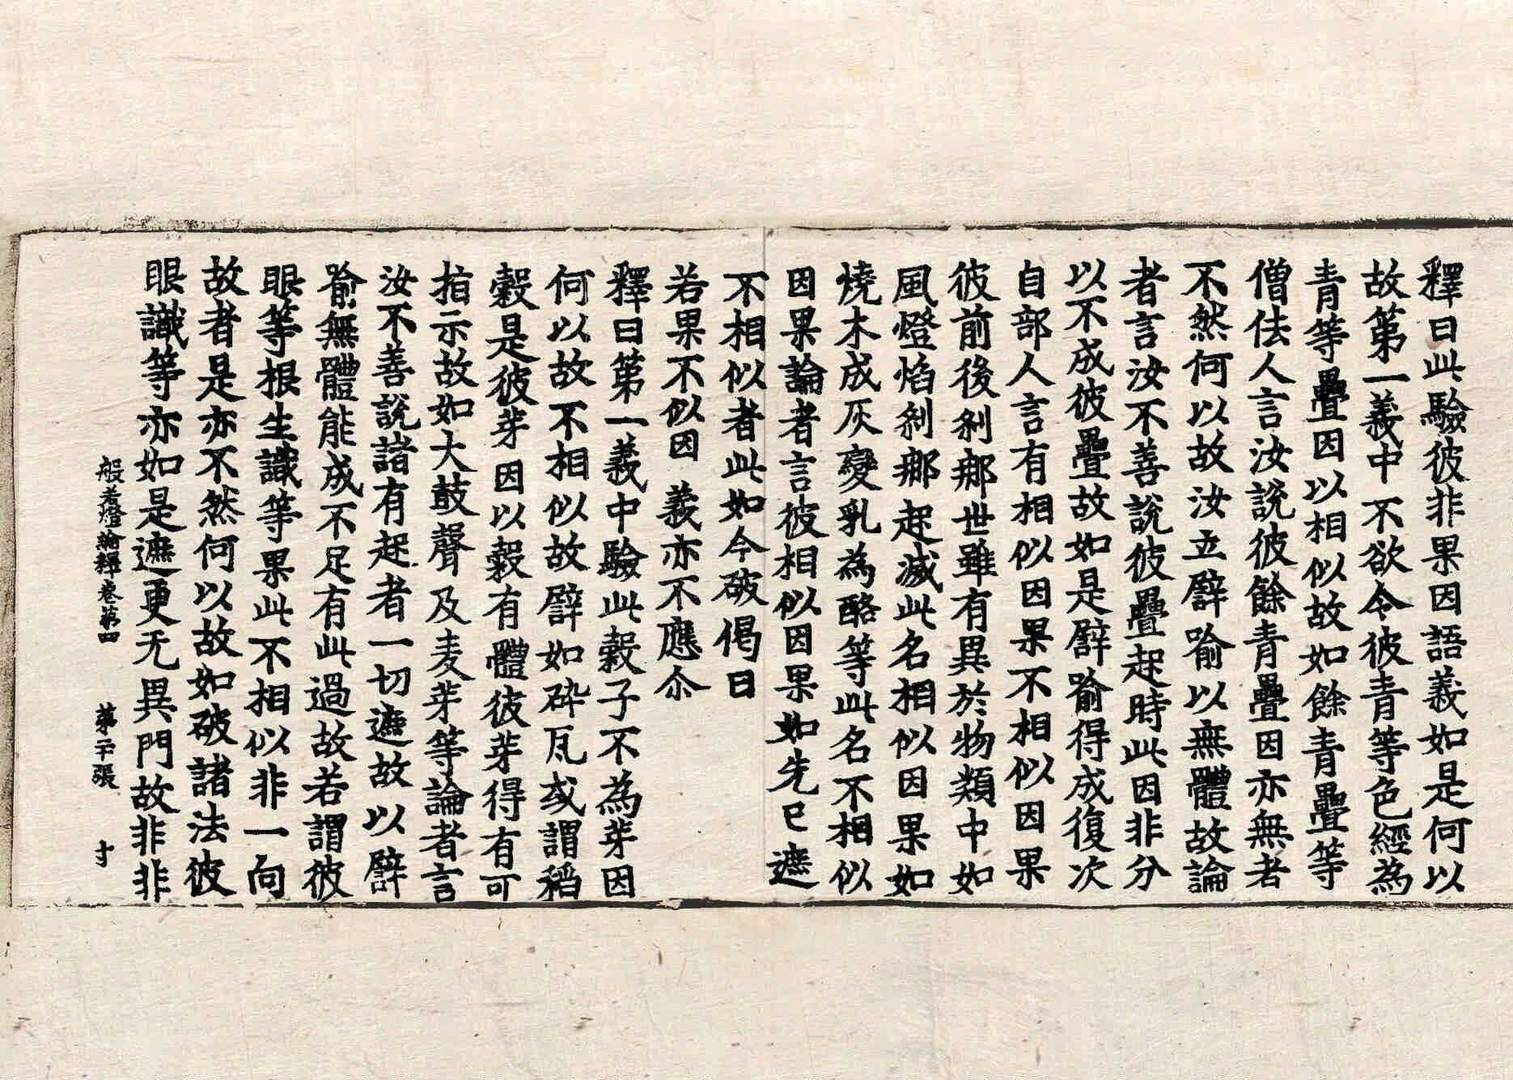 釋曰此驗彼非果因語義如是何以
故第一義中不欲令彼青等色經為
青等疊因以相似故如餘青疊等
僧佉人言汝說彼餘青疊因亦無者
不然何以故汝立譬喻以無體故論
者言汝不善說彼疊起時此因非分
以不成彼疊故如是譬喻得成復次
自部人言有相似因果不相似因果
彼前後剎那世雖有異於物類中如
風燈焰剎那起滅此名相似因果如
燒木成灰變乳為酪等此名不相似
因果論者言彼相似因果如先已遮
不相似者此如今破偈曰
若果不似因　義亦不應尒
釋曰第一義中驗此糓子不為芽因
何以故不相似故譬如碎瓦或謂稻
糓是彼芽因以糓有體彼芽得有可
指示故如大鼓聲及麦芽等論者言
汝不善說諸有起者一切遮故以譬
喻無體能成不足有此過故若謂彼
眼等根生識等果此不相似非一向
故者是亦不然何以故如破諸法彼
眼識等亦如是遮更无異門故非非
般若燈論釋卷第四　第二十張　寸